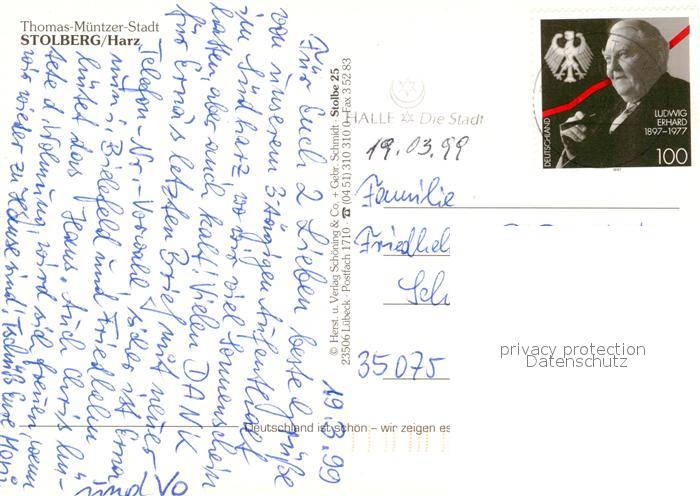 Thomas-Müntzer-Stadt
STOLBERG/Harz
Für Euch 2 Lieben beste Grüße
von unserem 3-tägigen Aufenthalt
im Südharz wo wir viel Sonnenschein
hatten, aber auch kalt! Vielen DANK
für Erna's letzten Brief mit neuer
Telefon-Nr.-Vorwahl sicher ist Erna
nun i. Bielefeld und Friedhelm
hütet das Haus. Auch Chris hü-
tete d. Wohnung, wird sich freuen, wenn
wir wieder zu Hause sind! Tschüß Eure
und
19.3.99
© Herst. u. Verlag Schöning & Co. + Gebr. Schmidt · Stolbe 25
23506 Lübeck · Postfach 1710 · ☎ (04 51) 310 310 0 · Fax 3 52 83
HALLE ✡ Die Stadt
19.03.99
DEUTSCHLAND
LUDWIG
ERHARD
1897–1977
100
1997
Familie
35075
privacy protection
Datenschutz
Deutschland ist schön – wir zeigen es